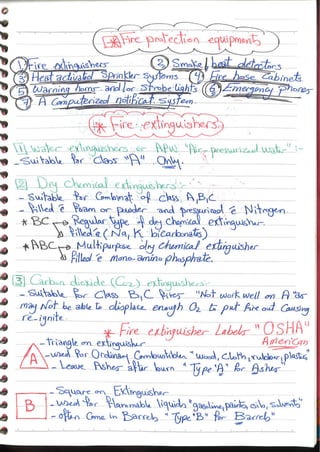 * Fire protection equipments
① Fire extinguishers ② Smoke / heat detectors
③ Heat activated Sprinkler Systems ④ Fire hose Cabinets
⑤ Warning horns and/or Strobe lights ⑥ Emergency Phones
⑦ A Computerized notificat. system.
* Fire extinguishers
1 Water extinguishers or APW "Air-pressurized water" :-
- Suitable for Class "A" Only.
2 Dry Chemical extinguishers :-
- Suitable for Combinat. of class A,B,C
- filled ē Foam or powder and pressurized ē Nitrogen
* BC → Regular type of dry chemical extinguisher.
↳ filled ē (Na, K bicarbonats)
* ABC → Multipurpose dry chemical extinguisher
↳ filled ē mono-amino phosphate.
3 Carbon dioxide (Co2) extinguishers :-
- Suitable for Class B,C fires "Not work well on A" as
may Not be able to displace enough O2 to put fire out Causing
re-ignite
* Fire extinguisher Labels "OSHA"
American
A
- triangle on extinguisher
- used for Ordinary Combustibles "wood, Cloth, rubber, plastic"
- Leave Ashes after burn "Type 'A' for Ashes"
B
- Square on Extinguisher
- used for flammable liquids "gasoline, paints, oils, solvents"
- often Come in Barrels "Type "B" for Barrels"